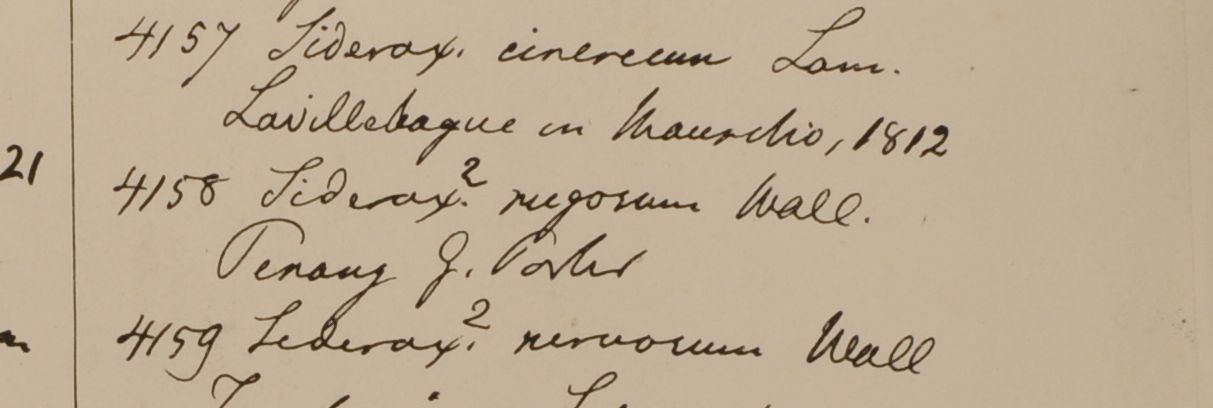 21
4157 Siderox. cinereum Lam.
Lavillebague in Mauritio, 1812
4158 Siderox.? rugosum Wall.
Penang G. Porter
4159 Siderox.? nervosum Wall